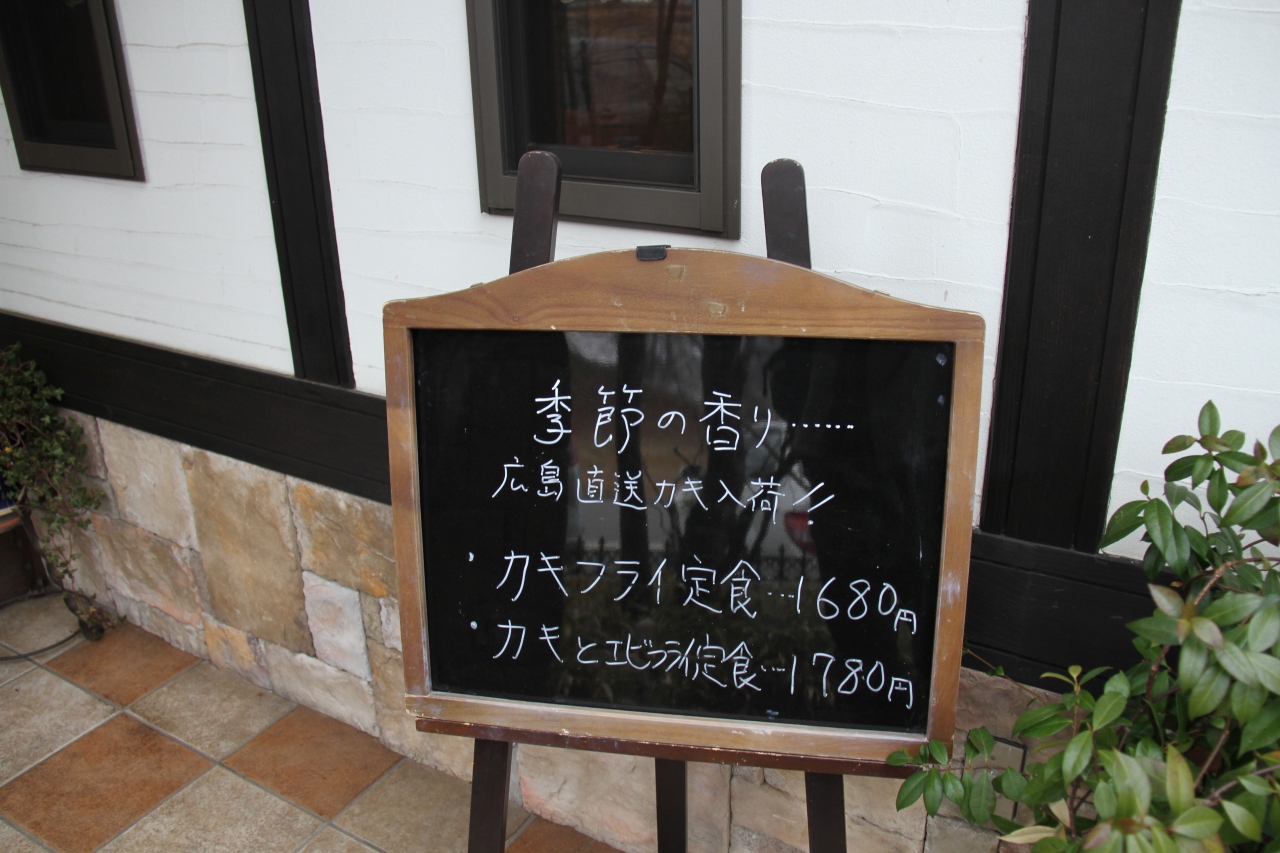 季節の香り……
広島直送カキ入荷!!
・カキフライ定食…1680円
・カキとエビフライ定食…1780円